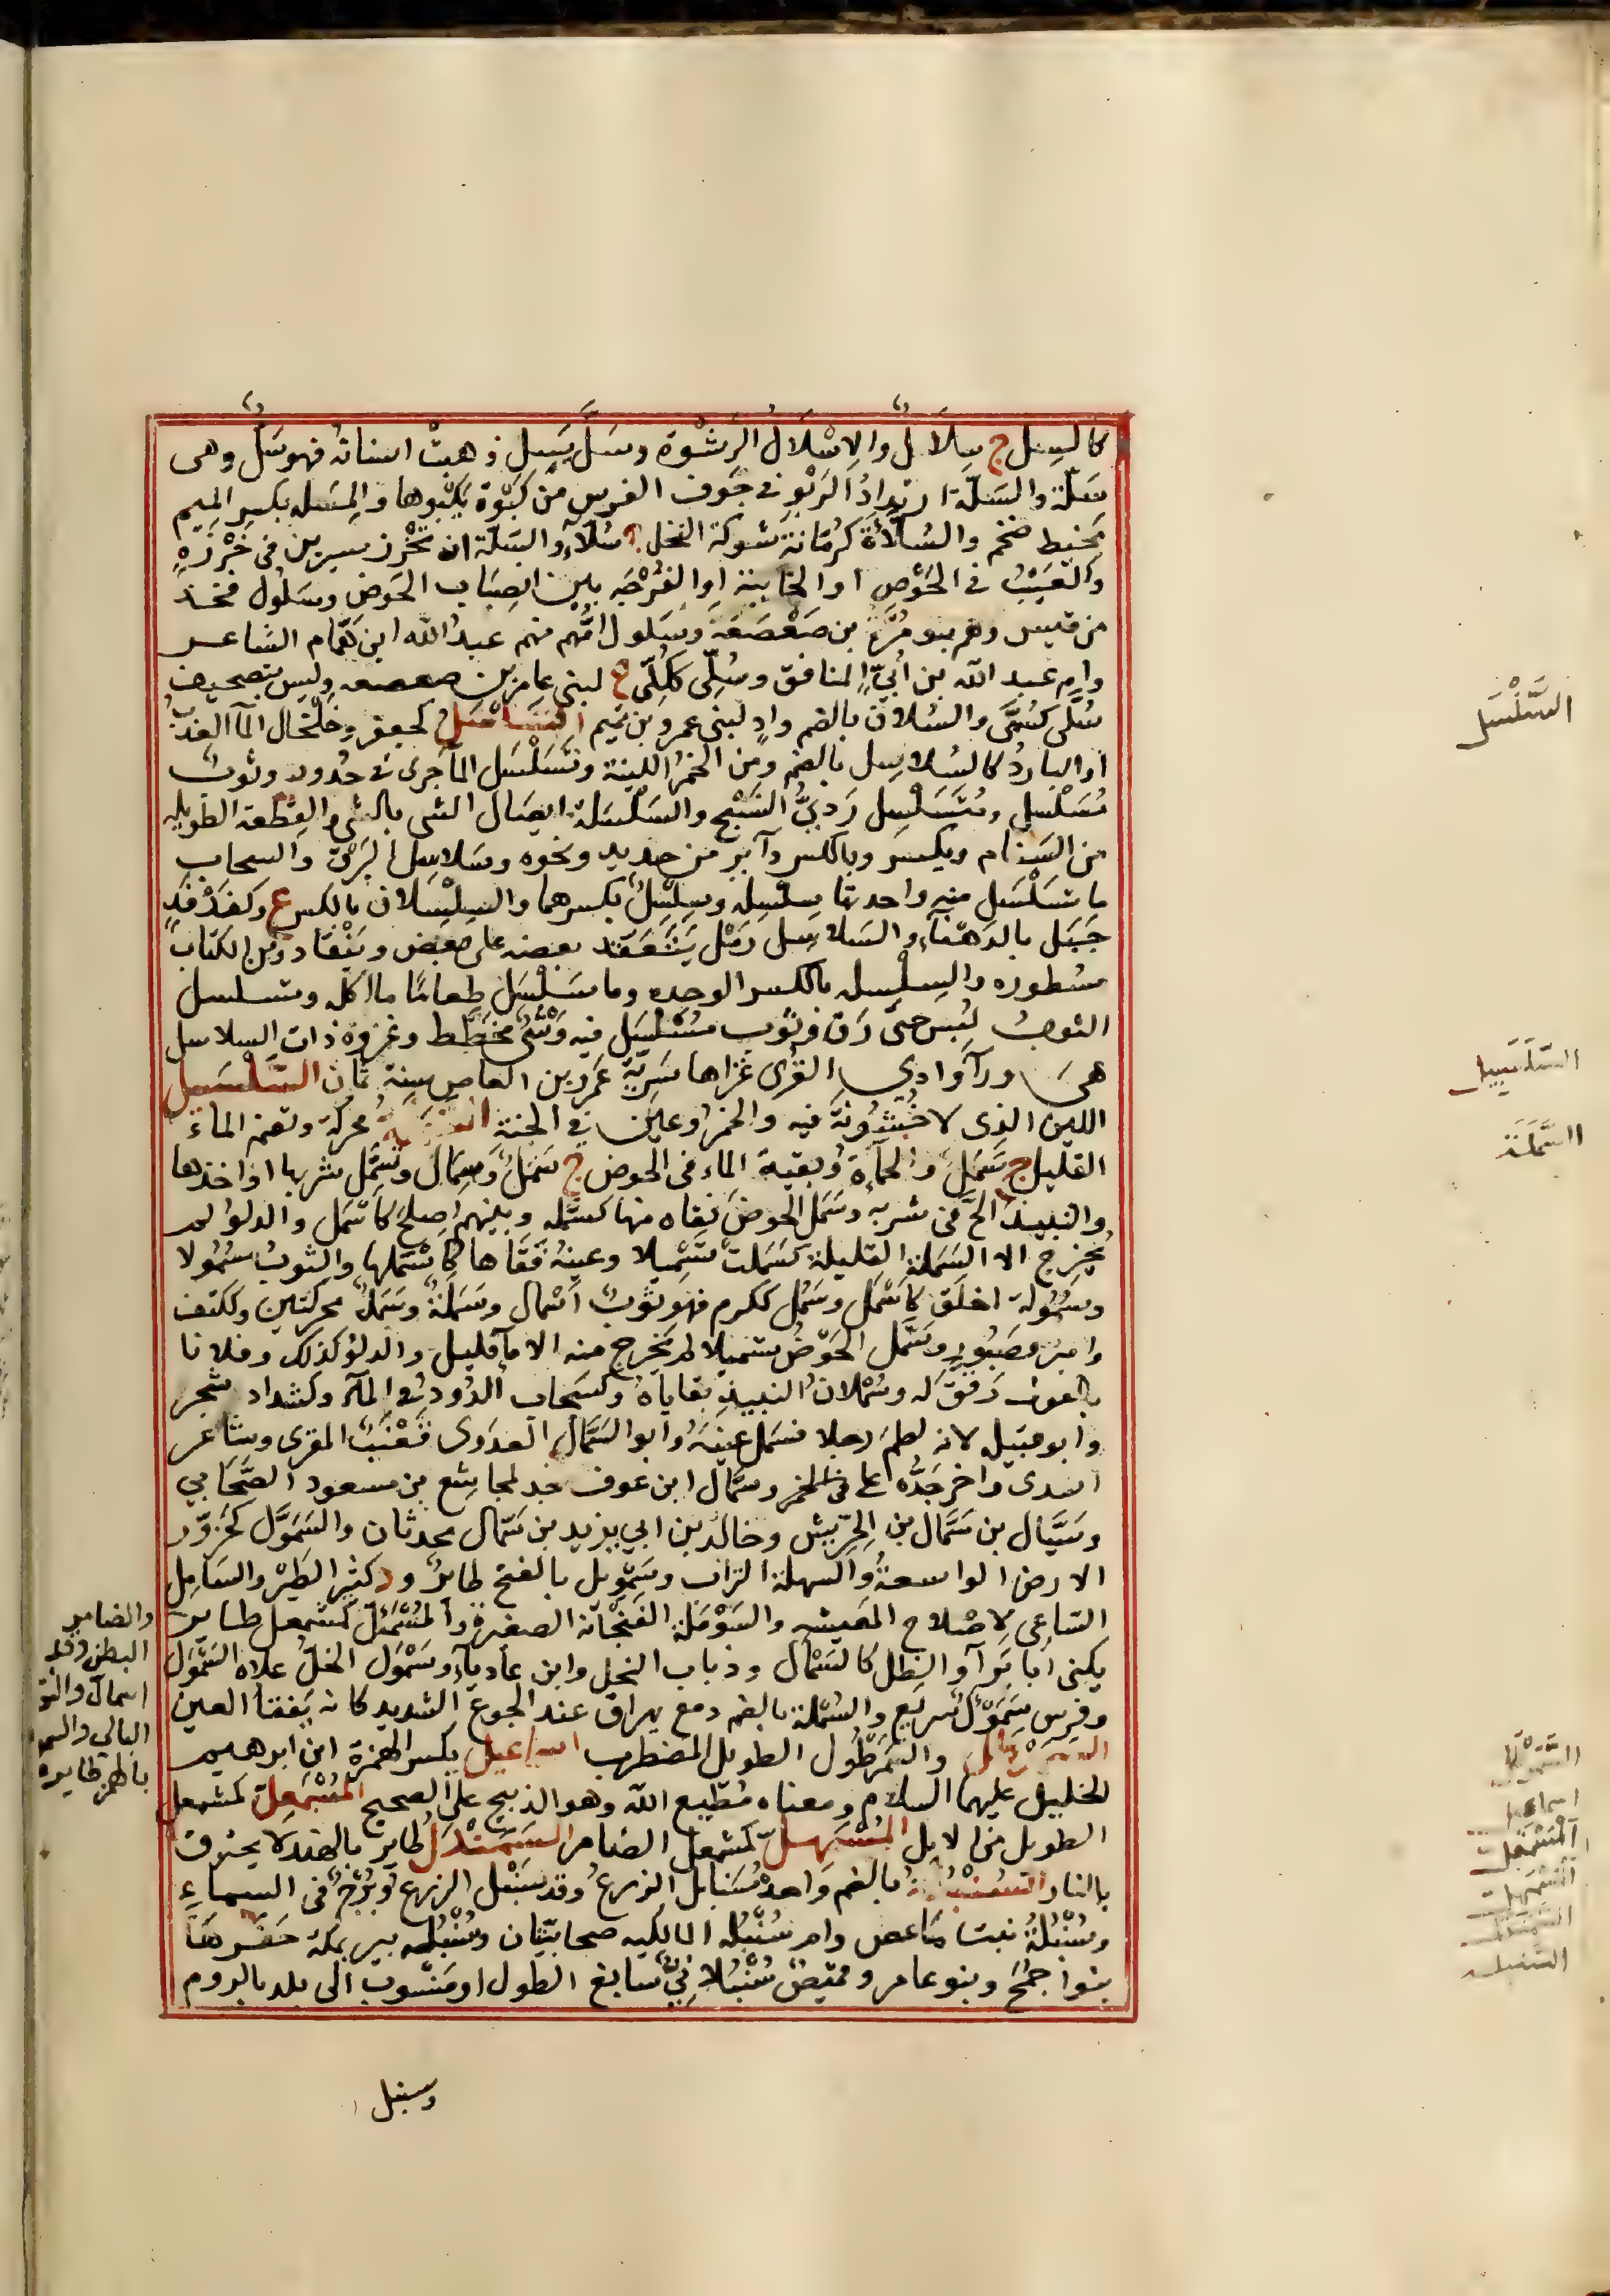 كالسل ج سلال والاسلال الرشوة وسل يسل ذهبت اسنانه فهو سل وهى
سلة والسلة ارتداد الربو فى جوف الفرس من كبوة يكبوها والمسله بكسر الميم
مخيط ضخم والسلاءة كرمانة شوكة النخل ج سلاء والسلة ان تخرز سيرين فى خرزه
والعيب فى الحوض او الخابية او الفرجه بين انصاب الحوض وسلول فخذ
من قيس وهم بنو مرة بن صعصعة وسلول امهم منهم عبد الله ابن همام الشاعر
وام عبد الله بن ابى المنافق وسلى ككلى ع لبنى عامر بن صعصعه وليس بتصحيف
سلى كسمى والسلان بالضم واد لبنى عمرو بن تميم السلسل كجعفر وخلخال المآ العذب
او البارد كالسلاسل بالضم ومن الخمر اللينة وتسلسل المآ جرى فى حدور وثوب
مسلسل ومتسلسل ردىء النسج والسلسلة ايصال الشى بالشى والقطعة الطويله
من السنام ويكسر وبالكسر دآير من حديد ونحوه وسلاسل البرق والسحاب
ما تسلسل منه واحدتها سلسله وسلسل بكسرهما والسلسلان بالكسر ع وكفدفد
جبل بالدهنآء والسلاسل رمل يتعقد بعضه على بعض وينقاد ومن الكتاب
سطوره والسلسله بالكسر الوحره وما سلسل طعاما ما اكله وتسلسل
الثوب لبس حتى رق فهو ثوب مسلسل فيه وشى مخطط وغزوة ذات السلاسل
هى ورآ وادى القرى غزاها سرية عمرو بن العاص سنة ثمان السلسبيل
اللين الذى لا خشونة فيه والخمر وعين فى الجنة السملة محركة وتضم الماء
القليل ج سمل والحمأة وبقية الماء فى الحوض ج سمل وسمال وتسمل شربها او اخذها
والنبيذ الح فى شربه وسمل الحوض نقاه منها كسمله وبينهم اصلح كاسمل والدلو لم
يخرج الا السملة القليلة كسملت تسميلا وعينه فقاها كاستملها والثوب سمولا
وسمولة اخلق كاسمل وسمل ككرم فهو ثوب اسمال وسملة وسمل محركتين وككتف
وامير وصبور وسمل الحوض تسميلا لم يخرج منه الا مآ قليل والدلو كذلك وفلانا
بالقول رفق له وسملان النبيذ بقاياه وكسحاب الدود فى المآء وكشداد شجر
وابو قبيل لانه لطم رجلا فسمل عينه وابو السمال العدوى قعنب المقرى وشاعر
اسدى واخر جده على فى الخمر وسمال ابن عوف جد لمجاشع بن مسعود الصحابي
وسيال بن سمال بن الحريش وخالد بن ابي يزيد بن سمال محدثان والسمول كحزور
الارض الواسعة والسهلة التراب وسمويل بالفتح طاير ود كثير الطير والسامل
الساعى لاصلاح المعيشه والسوملة الفنجانة الصغيرة والمسمئل كمشمعل طاير
يكنى ابا برآ والظل كالسمال وذباب النخل وابن عادياء وسمول الخل علاه السمول
وفرس سمول سريع والسملة بالضم دمع يهراق عند الجوع الشديد كانه يفقأ العين
والسمرطول الطويل المضطرب اسماعيل بكسر الهمزة ابن ابرهيم
الخليل عليهما السلام ومعناه مطيع الله وهو الذبيح على الصحيح المسمعل كمشمعل
الطويل من الابل المسمهل كمشمعل الضامر السمندل طاير بالهند لا يحترق
بالنار السنبلة بالضم واحدة سنابل الزرع وقد سنبل الزرع وبرج فى السماء
وسنبلة نبت ماعص وام سنبله المالكيه صحابيتان وسنبله بير بمكة حفرها
بنوا جمح وبنو عامر وقميص سنبلانى سابغ الطول او منسوب الى بلد بالروم
وسنبل
والضامر
البطن وقد
اسمال والثو
البالى والسمو
بالهمز طايره
السلسل
السلسبيل
السملة
اسماعيل
المسمعل
المسمهل
السمندل
السنبلة